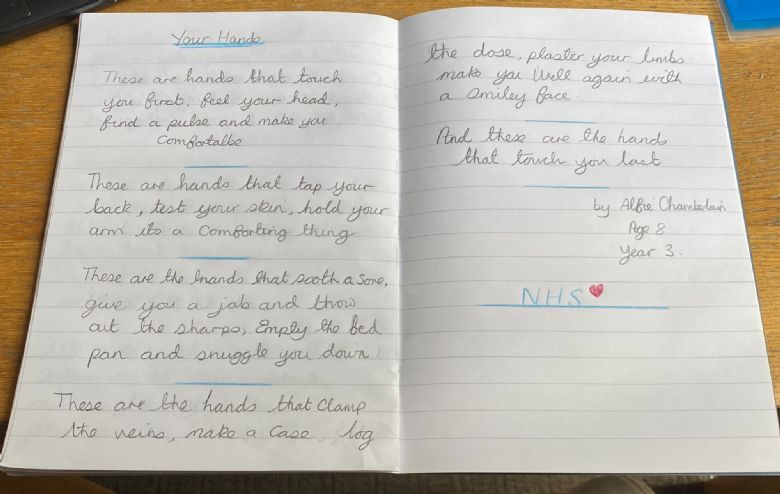 Your Hands
These are hands that touch
you first, feel your head,
find a pulse and make you
Comfortalbe
These are hands that tap your
back, test your skin, hold your
arm its a Comforting thing
These are the hands that sooth a sore,
give you a jab and throw
out the sharps, Empty the bed
pan and snuggle you down!
These are the hands that clamp
the veins, make a Case, log
the dose, plaster your limbs
make you Well again with
a smiley face.
And these are the hands
that touch you last
by Alfie Chamberlain
Age 8
Year 3.
NHS